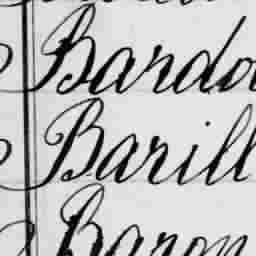 Bardo
Barill
Baron